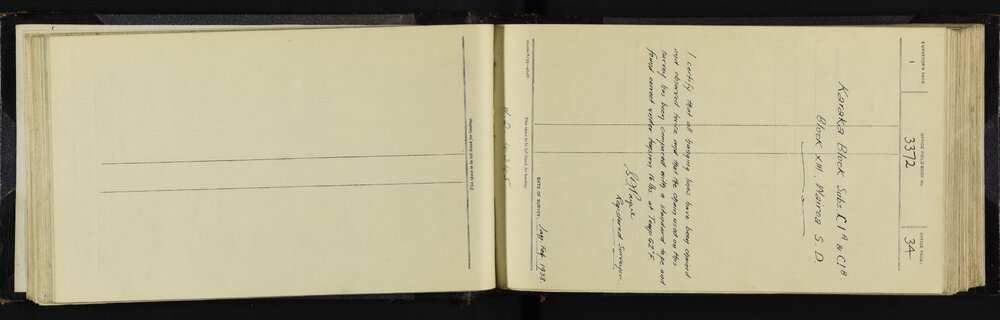 SURVEYOR'S PAGE
1
OFFICE FIELD-BOOK No.
3372
OFFICE PAGE:
34
Karaka Block Subs C1A & C1B
Block XIII. Wairoa S. D
I certify that all traverse lines have been chained
and observed twice and that the chain used on this
survey has been compared with a standard tape and
found correct under tension 16 lbs at Temp 62°F.
Registered Surveyor
DATE OF SURVEY: Jan. Feb. 1928.
This space to be left blank for binding.
This space to be left blank for binding.